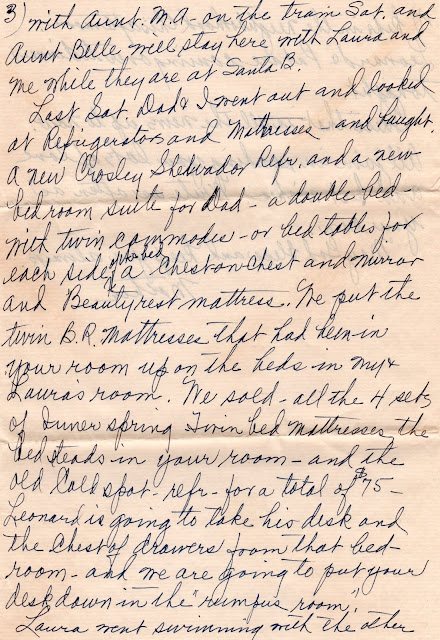 3) with Aunt. M.A. on the train Sat. and
Aunt Belle will stay here with Laura and
me while they are at Santa B.
Last Sat. Dad & I went out and looked
at Refrigerators and Mattresses - and bought
a new Crosley Shelvador Refr. and a new
bed room suite for Dad - a double bed -
with twin commodes - or bed tables for
each side of the bed, a Chest on Chest and mirror
and Beautyrest mattress. We put the
twin B.R. Mattresses that had been in
your room up on the beds in my &
Laura's room. We sold - all the 4 sets
of Inner spring Twin bed mattresses, the
bed steads in your room - and the
old Cold spot - refr - for a total of $75 -
Leonard is going to take his desk and
the Chest of drawers from that bed-
room - and we are going to put your
desk down in the "rumpus room".
Laura went swimming with the other